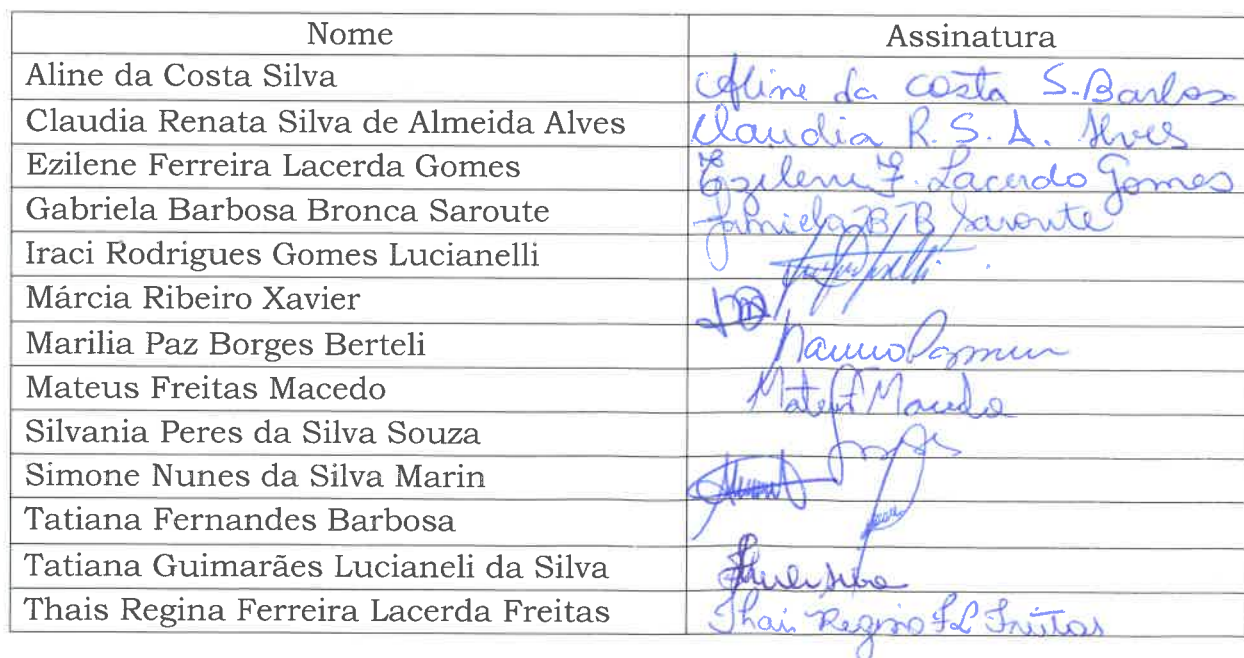 Nome Assinatura
Aline da Costa Silva Aline da Costa S. Barbosa
Claudia Renata Silva de Almeida Alves Claudia R. S. A. Alves
Ezilene Ferreira Lacerda Gomes Ezilene F. Lacerda Gomes
Gabriela Barbosa Bronca Saroute Gabriela B. B Saroute
Iraci Rodrigues Gomes Lucianelli
Márcia Ribeiro Xavier
Marilia Paz Borges Berteli
Mateus Freitas Macedo Mateus F Macedo
Silvania Peres da Silva Souza
Simone Nunes da Silva Marin
Tatiana Fernandes Barbosa
Tatiana Guimarães Lucianeli da Silva
Thais Regina Ferreira Lacerda Freitas Thais Regina F L Freitas